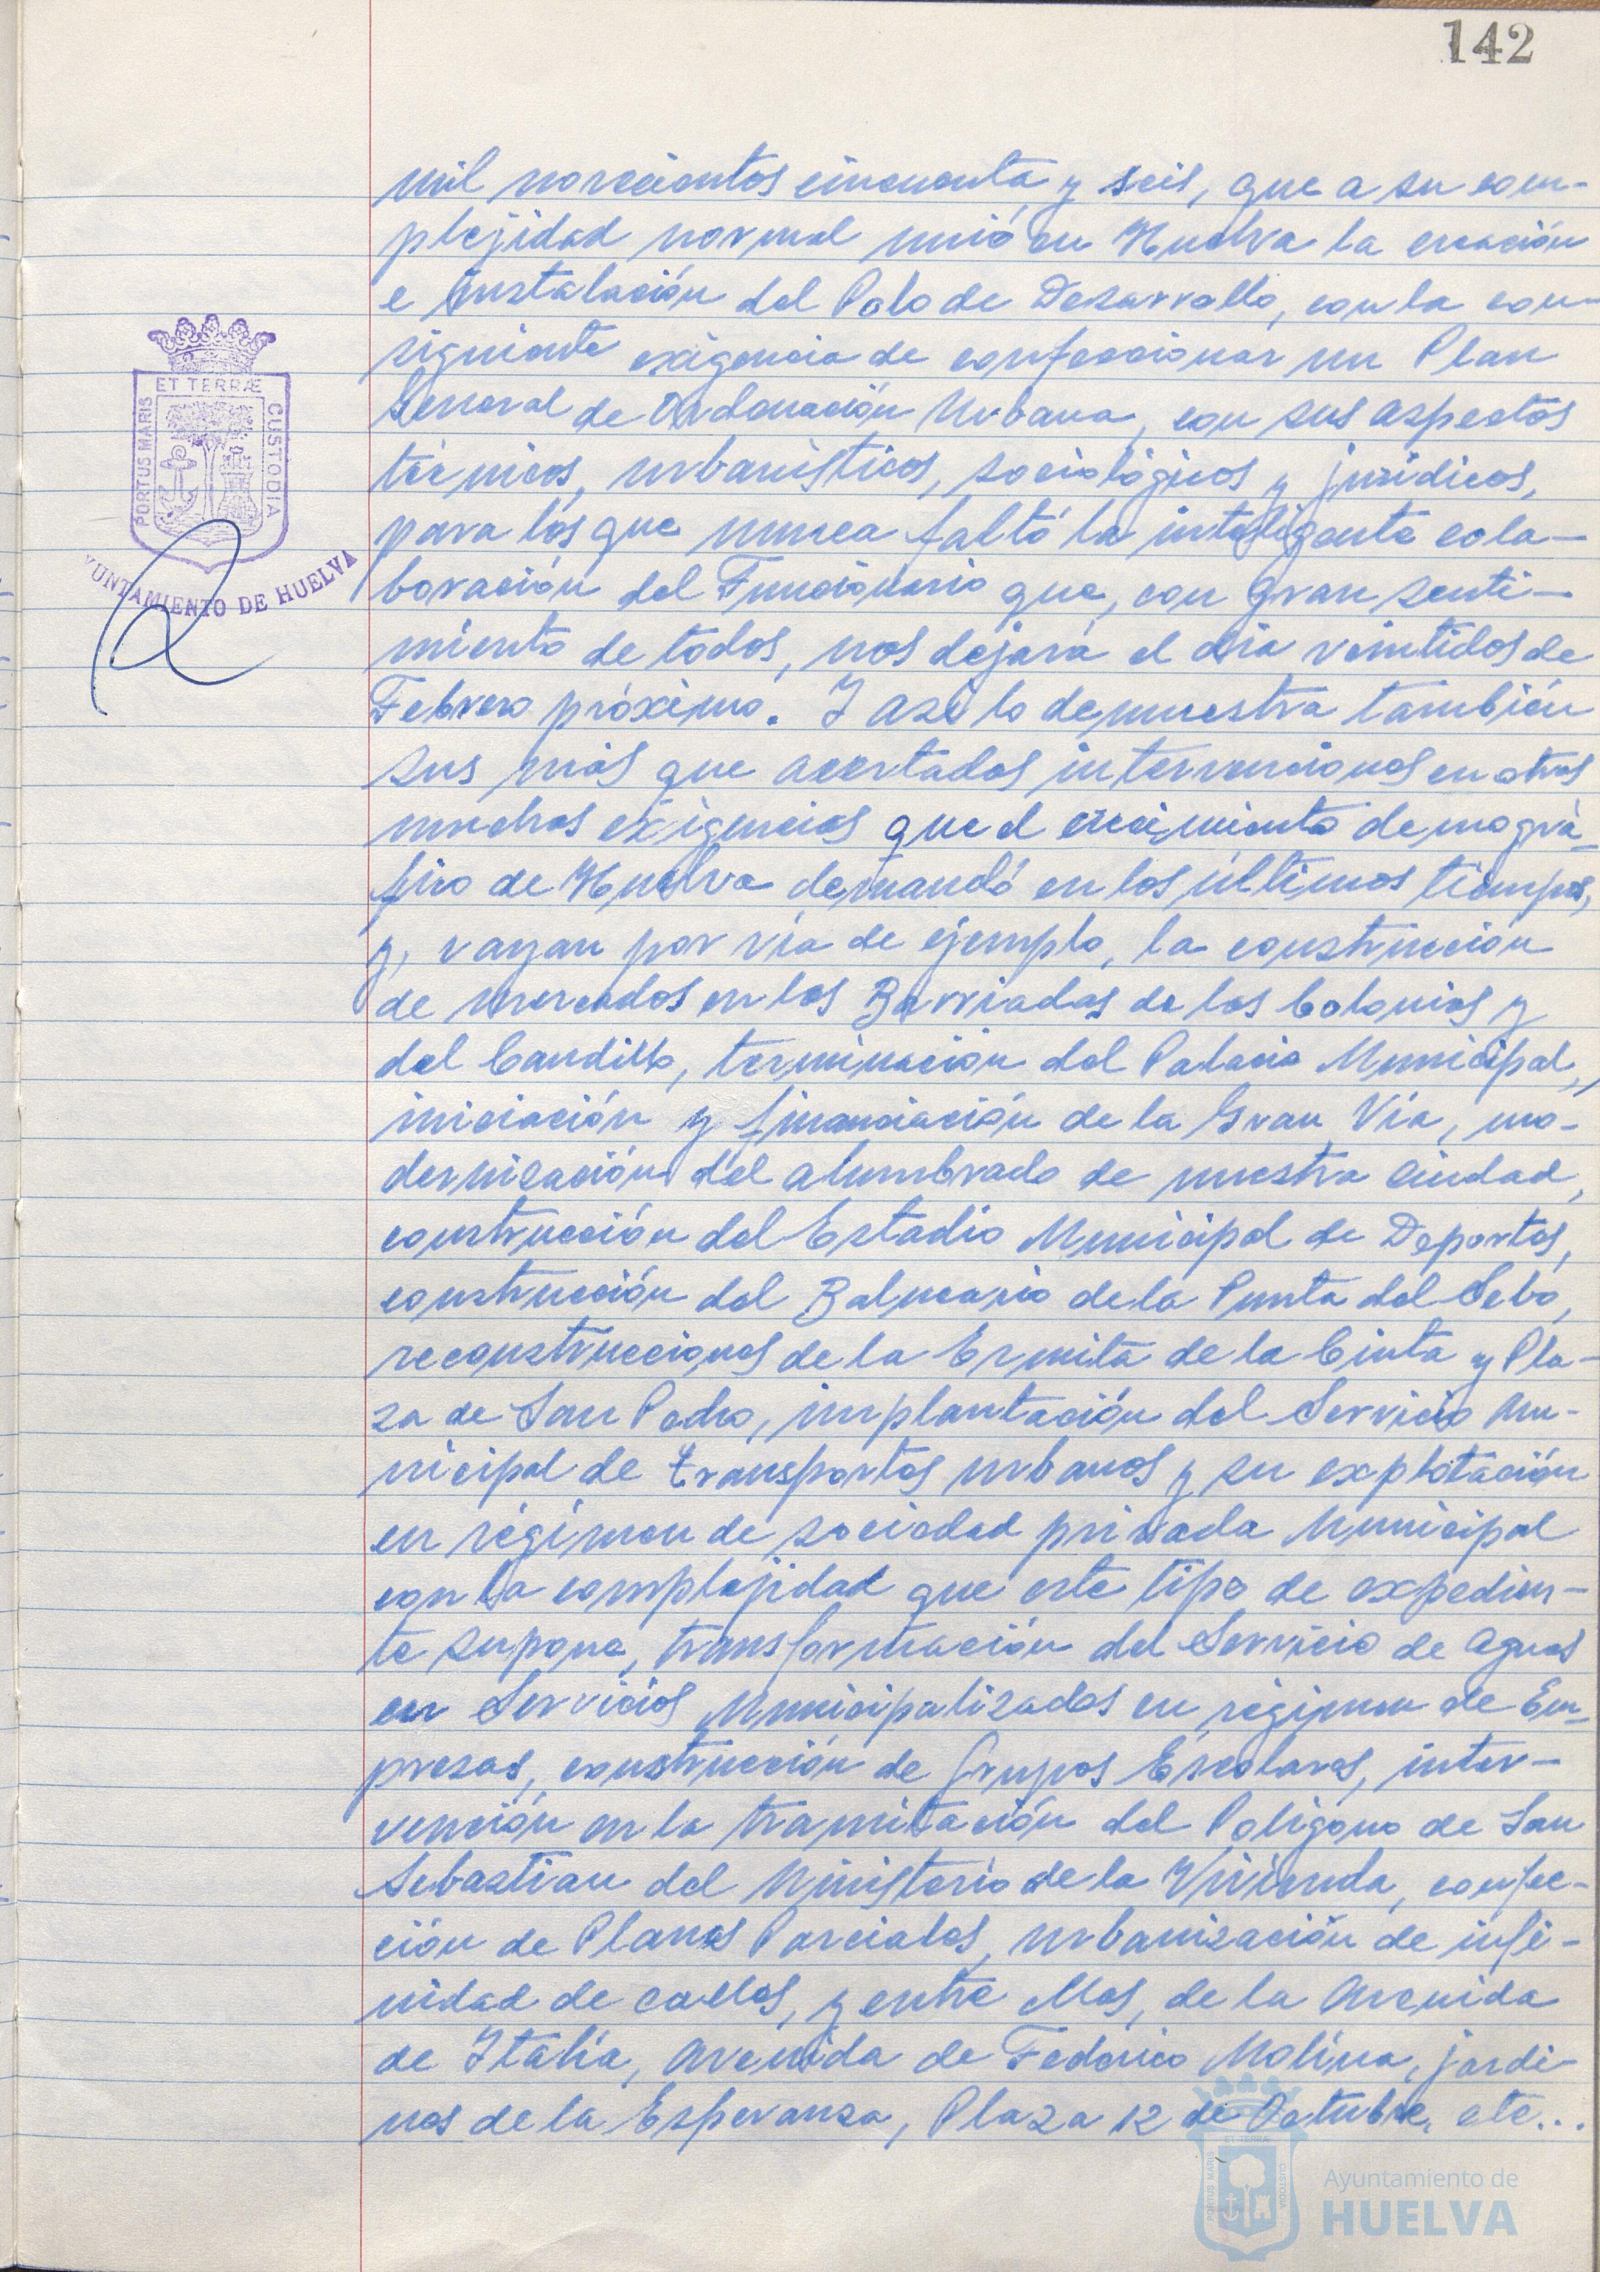 142
mil novecientos cincuenta y seis, que a su com-
plejidad normal unió en Huelva la creación
e Instalación del Polo de Desarrollo, con la con-
siguiente exigencia de confeccionar un Plan
General de Ordenación Urbana, con sus aspectos
técnicos, urbanísticos, sociológicos y jurídicos,
para los que nunca faltó la inteligente cola-
boración del Funcionario que, con gran senti-
miento de todos, nos dejará el día veintidos de
Febrero próximo. Y asi lo demuestra también
sus más que acertadas intervenciones en otras
muchas exigencias que el crecimiento demográ-
fico de Huelva demandó en los últimos tiempos,
y, vayan por vía de ejemplo, la construcción
de mercados en las Barriadas de las Colonias y
del Caudillo, terminación del Palacio Municipal,
iniciación y financiación de la Gran Vía, mo-
dernización del alumbrado de nuestra Ciudad,
construcción del Estadio Municipal de Deportes,
construcción del Balneario de la Punta del Sebo,
reconstrucciones de la Ermita de la Cinta y Pla-
za de San Pedro, implantación del Servicio Mu-
nicipal de transportes urbanos y su explotación
en régimen de sociedad privada Municipal
con la complejidad que este tipo de expedien-
te supone, transformación del Servicio de Aguas
en Servicios Municipalizados en régimen de Em-
presas, construcción de Grupos Escolares, inter-
vención en la tramitación del Polígono de San
Sebastian del Ministerio de la Vivienda, confec-
ción de Planes Parciales, urbanización de infi-
nidad de calles, y entre ellas, de la Avenida
de Italia, Avenida de Federico Molina, jardi-
nes de la Esperanza, Plaza 12 de Octubre, etc...
ET TERRÆ
PORTUS MARIS
CUSTODIA
YUNTAMIENTO DE HUELVA
Ayuntamiento de
HUELVA